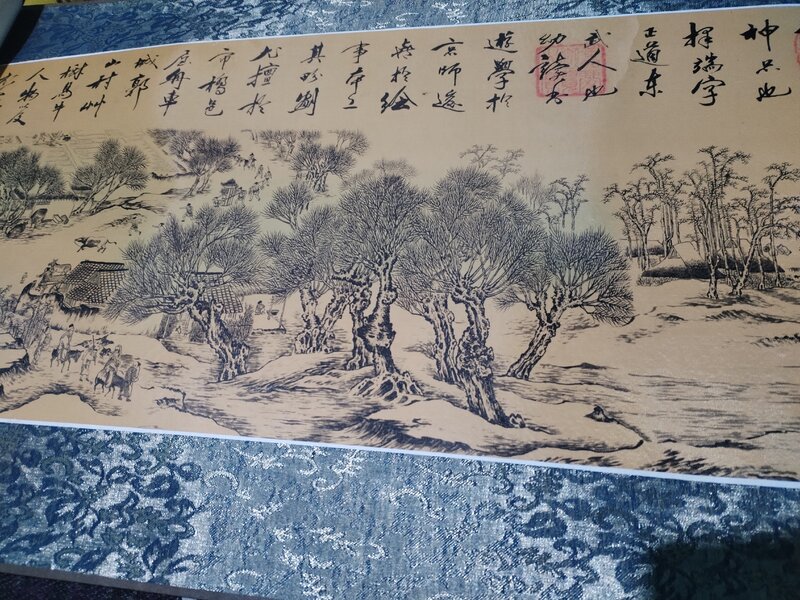 神品也
擇端字
正道東
武人也
幼讀書
遊學於
京師後
喜於繪
事本工
其劃
尤擅於
市橋邑
屋舟車
城郭
山村艸
樹馬牛
人物及